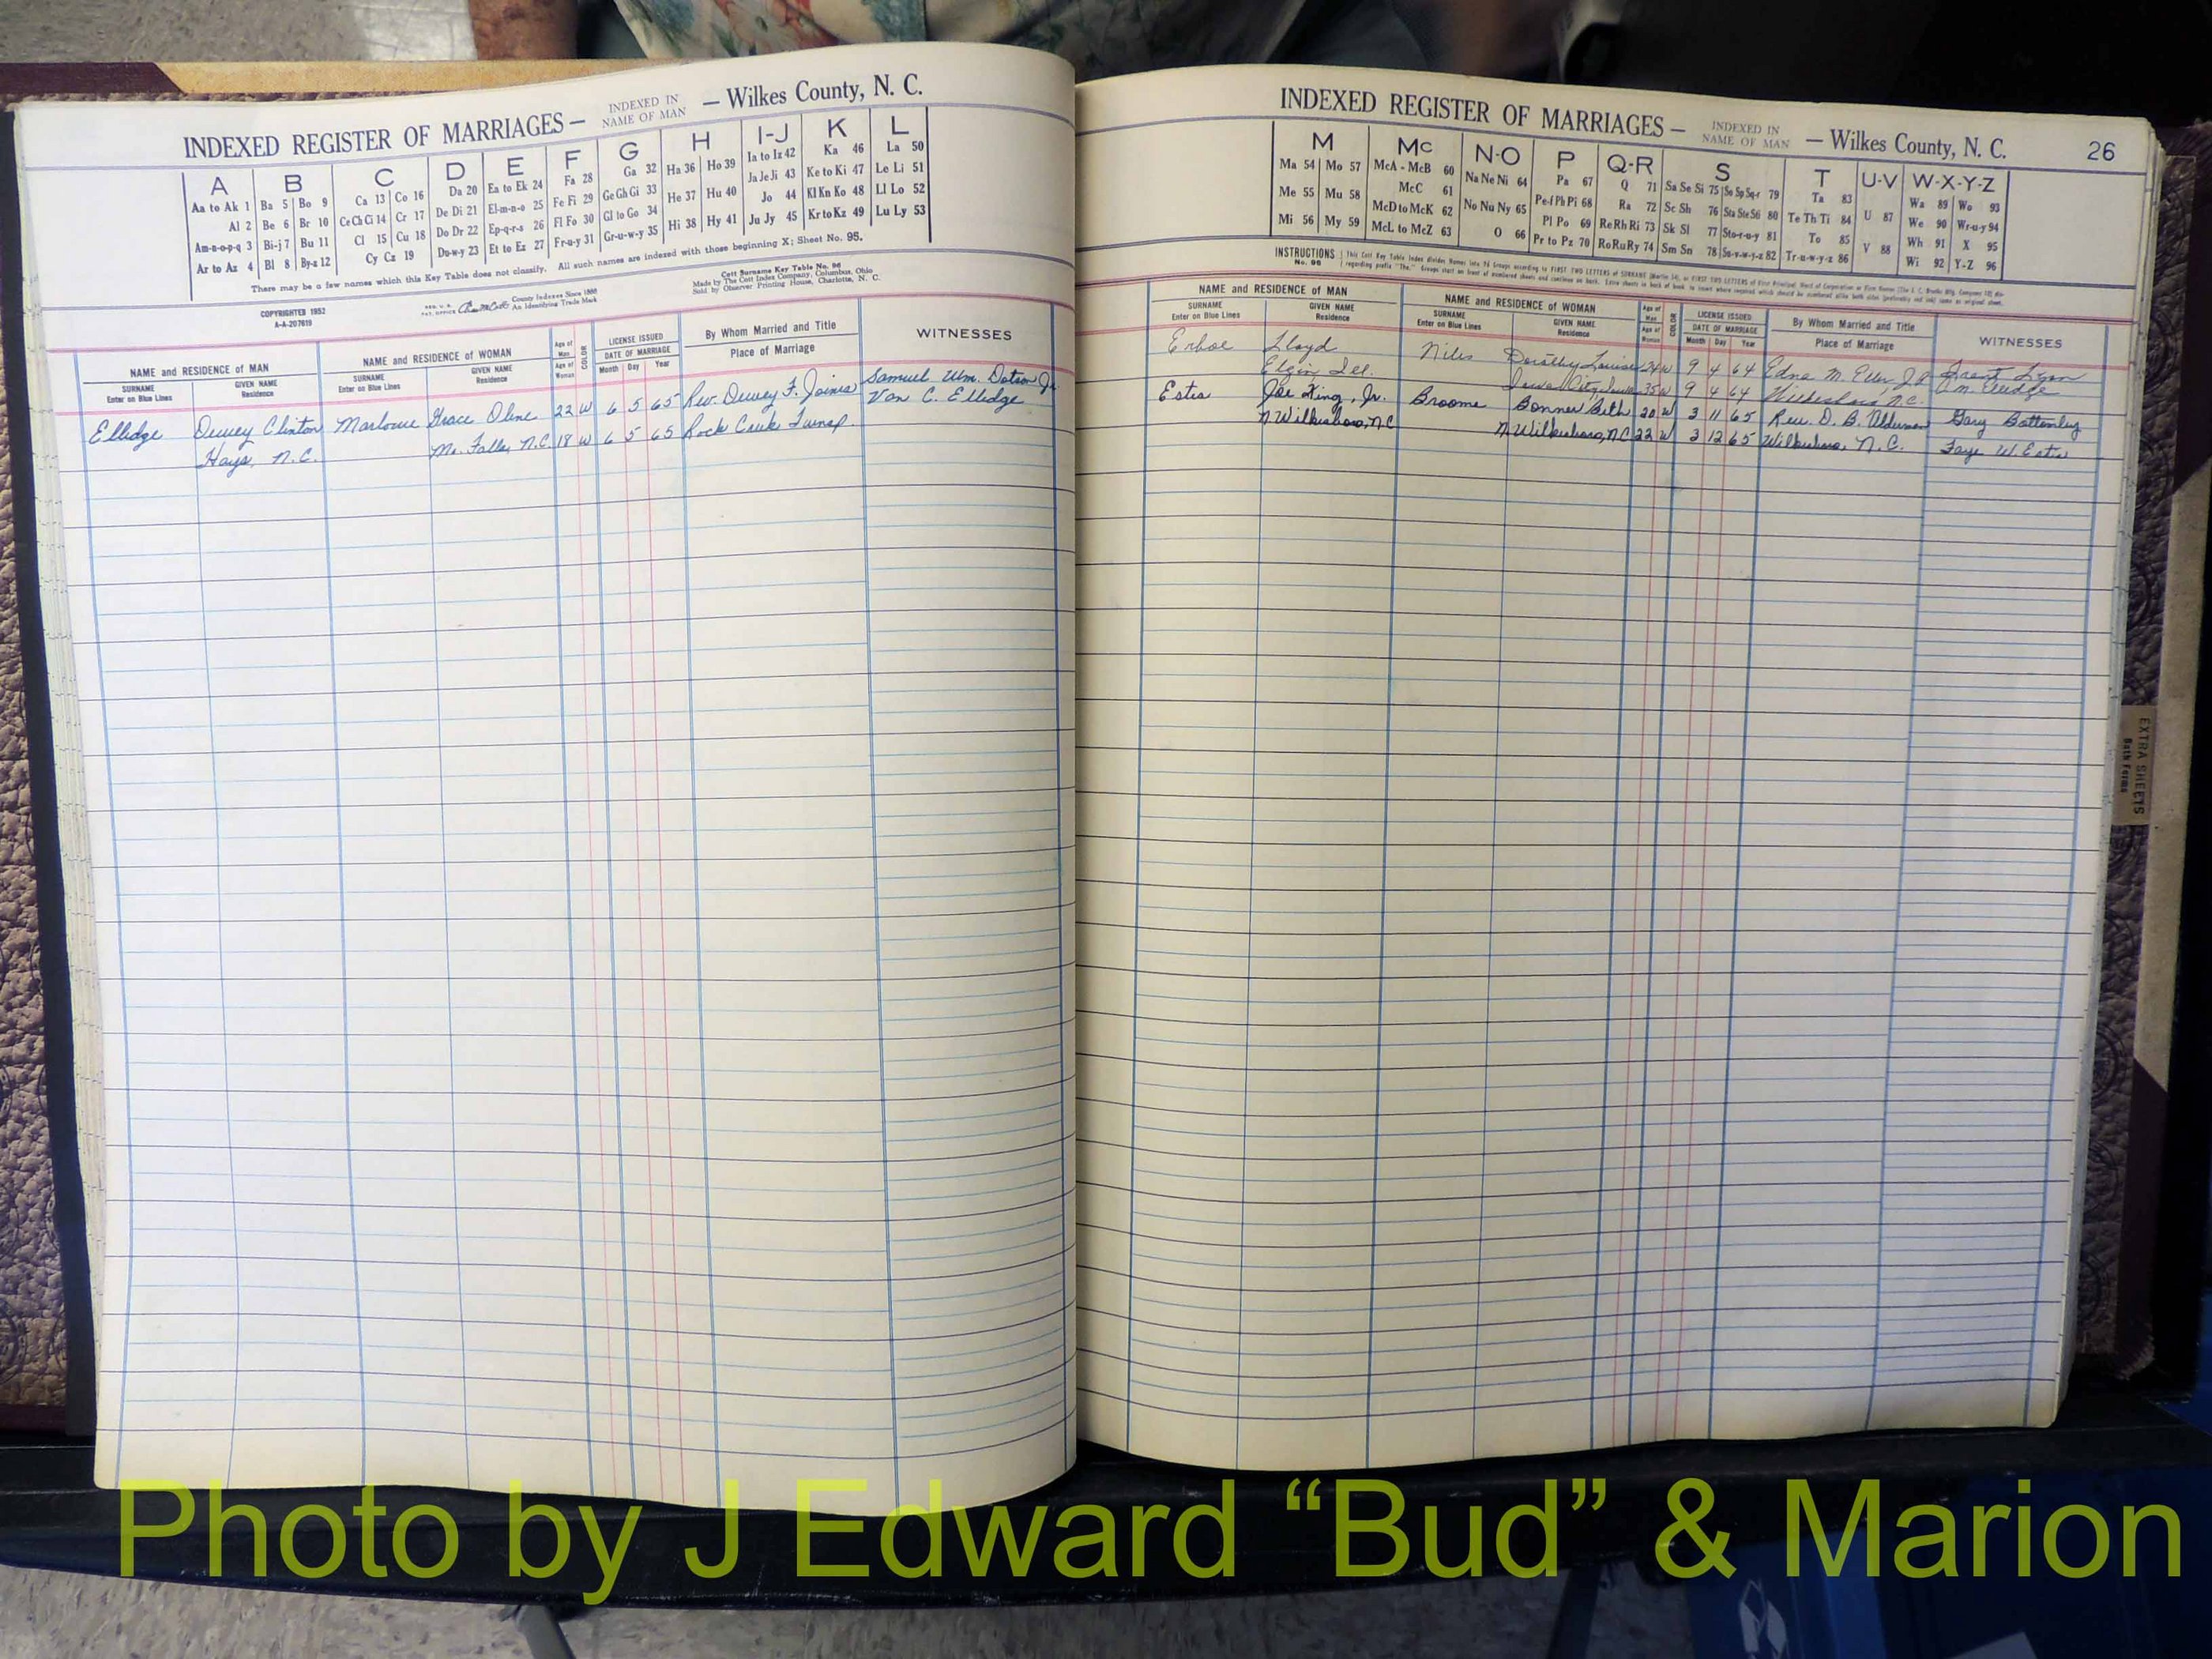 INDEXED REGISTER OF MARRIAGES — INDEXED IN NAME OF MAN — Wilkes County, N. C.
A B C D E F G H I-J K L
Aa to Ak 1 Ba 5 Bo 9 Ca 13 Co 16 Da 20 Ea to Ek 24 Fa 28 Ga 32 Ha 36 Ho 39 Ia to Iz 42 Ka 46 La 50
Al 2 Be 6 Br 10 Ce Ch Ci 14 Cr 17 De Di 21 El-m-n-o 25 Fe Fi 29 Ge Gh Gi 33 He 37 Hu 40 Ja Je Ji 43 Ke to Ki 47 Le Li 51
Am-n-o-p-q 3 Bi-j 7 Bu 11 Cl 15 Cu 18 Do Dr 22 Ep-q-r-s 26 Fl Fo 30 Gl to Go 34 Hi 38 Hy 41 Jo 44 Kl Kn Ko 48 Ll Lo 52
Ar to Az 4 Bl 8 By-z 12 Cy Cz 19 Du-w-y 23 Et to Ez 27 Fr-u-y 31 Gr-u-w-y 35 Ju Jy 45 Kr to Kz 49 Lu Ly 53
There may be a few names which this Key Table does not classify. All such names are indexed with those beginning X; Sheet No. 95.
COPYRIGHTED 1952
A-A-207619
County Indexes Since 1888
An Identifying Trade Mark
Cott Surname Key Table No. 96
Made by The Cott Index Company, Columbus, Ohio
Sold by Observer Printing House, Charlotte, N. C.
NAME and RESIDENCE OF MAN NAME and RESIDENCE OF WOMAN Age of Man COLOR LICENSE ISSUED By Whom Married and Title WITNESSES
SURNAME Enter on Blue Lines GIVEN NAME Residence SURNAME Enter on Blue Lines GIVEN NAME Residence Age of Woman DATE OF MARRIAGE Month Day Year Place of Marriage
Ellidge Dewey Clinton Marlowe Grace Oline 22 W 6 5 65 Rev. Dewey F. Joines Samuel Wm. Dotson Jr.
Hays, N.C. Mo. Falls, N.C. 18 W 6 5 65 Rock Creek Twnsp. Van C. Ellidge
INDEXED REGISTER OF MARRIAGES — INDEXED IN NAME OF MAN — Wilkes County, N. C. 26
M Mc N-O P Q-R S T U-V W-X-Y-Z
Ma 54 Mo 57 McA - McB 60 Na Ne Ni 64 Pa 67 Q 71 Sa Se Si 75 So Sp Sq-r 79 Ta 83 U 87 Wa 89 Wo 93
Me 55 Mu 58 McC 61 No Nu Ny 65 Pe-f Ph Pi 68 Ra 72 Sc Sh 76 Sta Ste S6 80 Te Th Ti 84 V 88 We 90 Wr-u-y 94
Mi 56 My 59 McD to McK 62 O 66 Pl Po 69 Re Rh Ri 73 Sk Sl 77 Sto-r-u-y 81 To 85 Wh 91 X 95
McL to McZ 63 Pr to Pz 70 Ro Ru Ry 74 Sm Sn 78 Su-v-w-y-z 82 Tr-u-w-y-z 86 Wi 92 Y-Z 96
INSTRUCTIONS No. 96
NAME and RESIDENCE OF MAN NAME and RESIDENCE OF WOMAN Age of Man COLOR LICENSE ISSUED By Whom Married and Title WITNESSES
SURNAME Enter on Blue Lines GIVEN NAME Residence SURNAME Enter on Blue Lines GIVEN NAME Residence Age of Woman DATE OF MARRIAGE Month Day Year Place of Marriage
Erboe Lloyd Niles Dorothy Louise 24 W 9 4 64 Edna M. Eller, J.P. Grant Lyon
Elgin Ill. Iowa City, Iowa 35 W 9 4 64 Wilkesboro, N.C.
Estis Joe King, Jr. Broome Bonner Beth 20 W 3 11 65 Rev. D. B. Alderman Gary Bottomley
N. Wilkesboro, N.C. N. Wilkesboro, N.C. 22 W 3 12 65 Wilkesboro, N.C. Faye W. Estis
EXTRA SHEETS
Both Forms
Photo by J Edward “Bud” & Marion